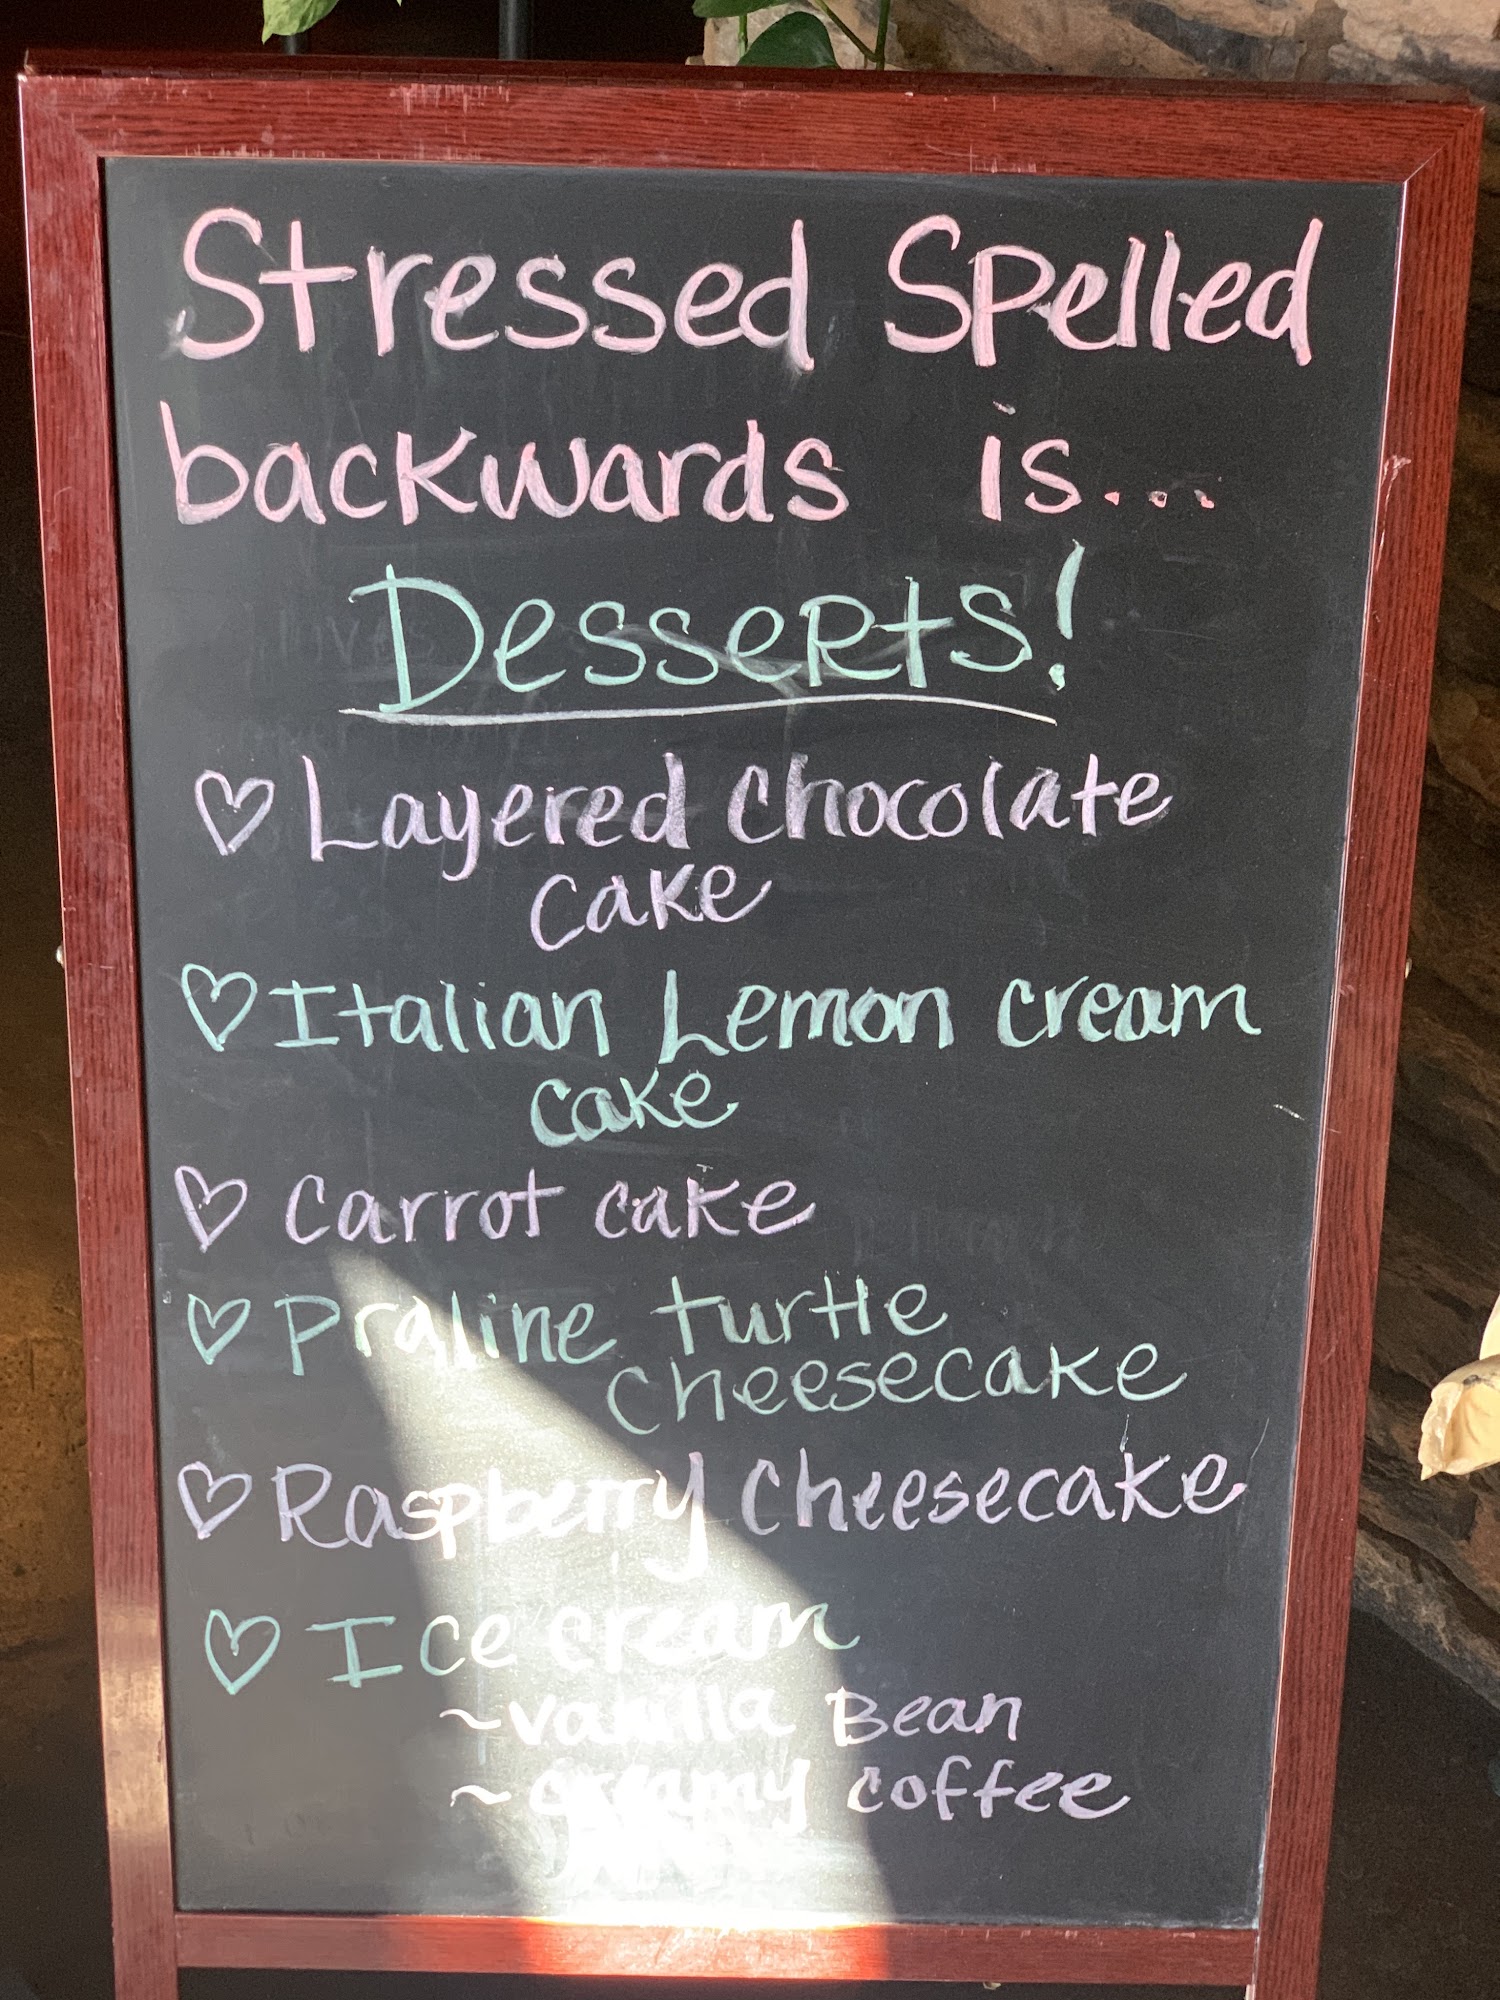 Stressed Spelled
backwards is...
Desserts!
♡ Layered Chocolate
cake
♡ Italian Lemon cream
cake
♡ Carrot cake
♡ Praline turtle
cheesecake
♡ Raspberry Cheesecake
♡ Ice cream
~vanilla Bean
~creamy coffee